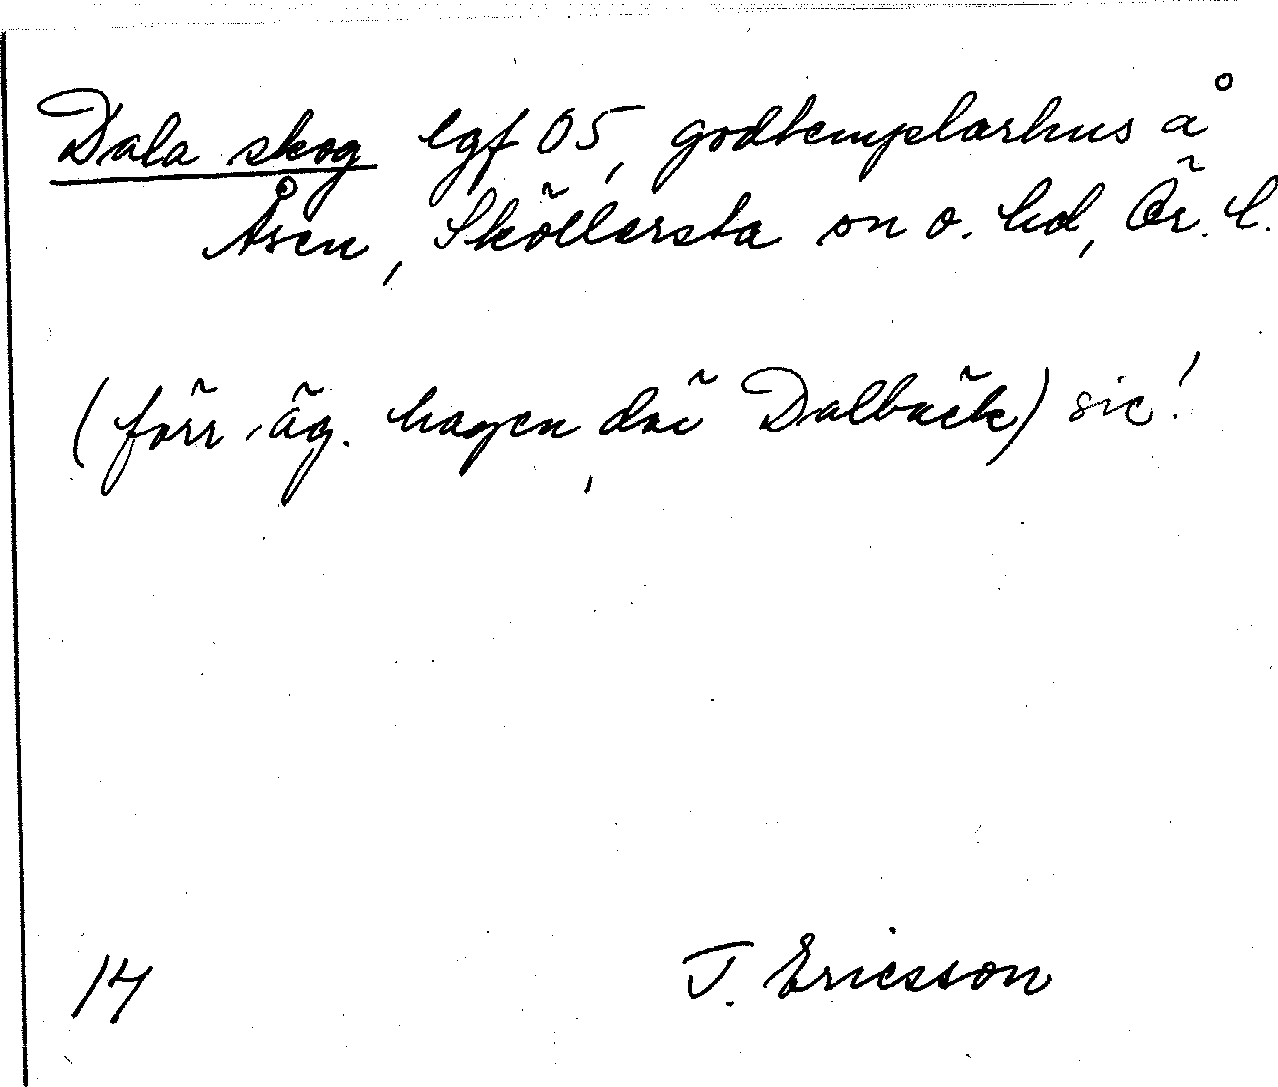 Dala skog lgf 05, godtemplarhus å
Åsen, Sköllersta sn o. hd, Ör. l.
(förr äg. hagen, dä Dalbäck) sic!
14 T. Ericsson